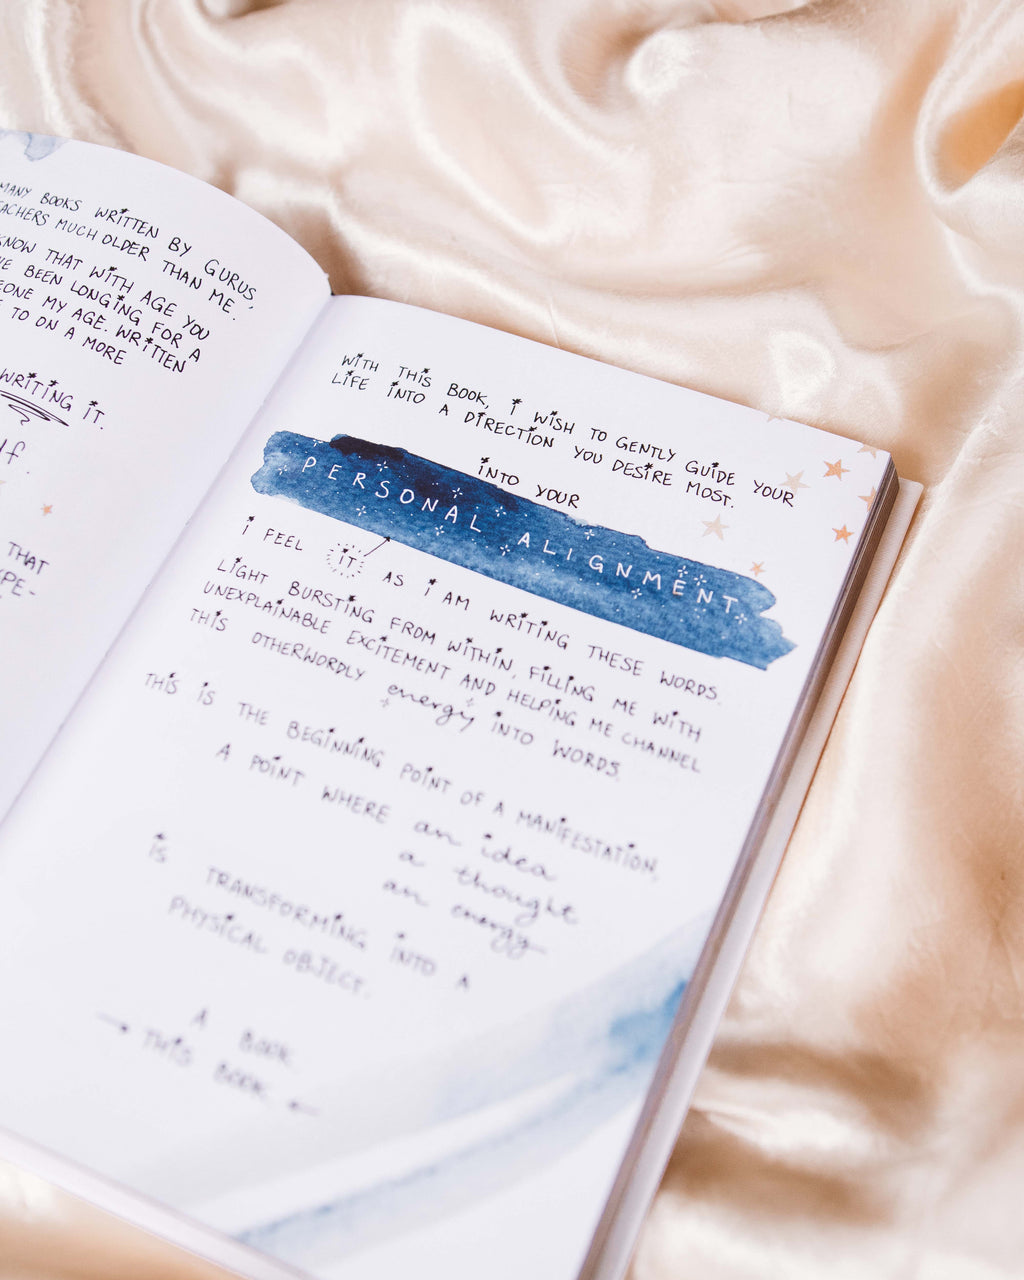 MANY BOOKS WRITTEN BY GURUS,
TEACHERS MUCH OLDER THAN ME.
KNOW THAT WITH AGE YOU
BEEN LONGING FOR A
MY AGE. WRITTEN
TO ON A MORE
WRITING IT.
THAT
WITH THIS BOOK, I WISH TO GENTLY GUIDE YOUR
LIFE INTO A DIRECTION YOU DESIRE MOST.
INTO YOUR
PERSONAL ALIGNMENT
I FEEL IT AS I AM WRITING THESE WORDS.
LIGHT BURSTING FROM WITHIN, FILLING ME WITH
UNEXPLAINABLE EXCITEMENT AND HELPING ME CHANNEL
THIS OTHERWORDLY energy INTO WORDS.
THIS IS THE BEGINNING POINT OF A MANIFESTATION,
A POINT WHERE an idea
a thought
an energy
IS TRANSFORMING INTO A
PHYSICAL OBJECT.
A BOOK.
→ THIS BOOK. ←